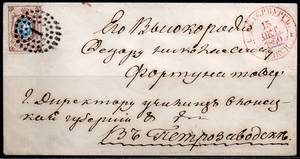 Его Высокородію
Федору Николаевичу
Фортунатову
Г. Директору училищъ Олонец-
кой губерніи
Въ Петрозаводскъ.